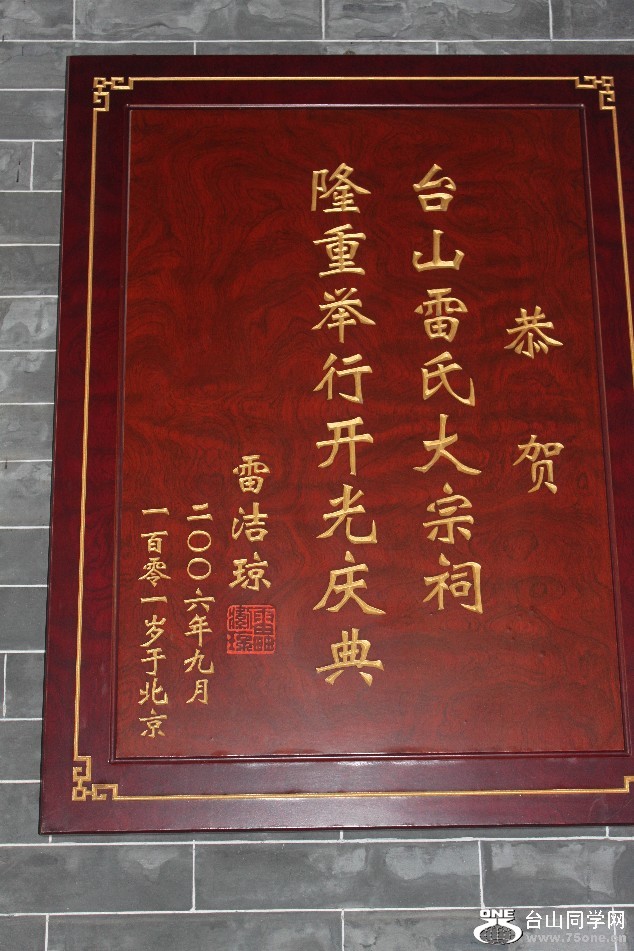 恭贺
台山雷氏大宗祠
隆重举行开光庆典
雷洁琼
二〇〇六年九月
一百零一岁于北京
ONE
台山同学网
www.75one.cn